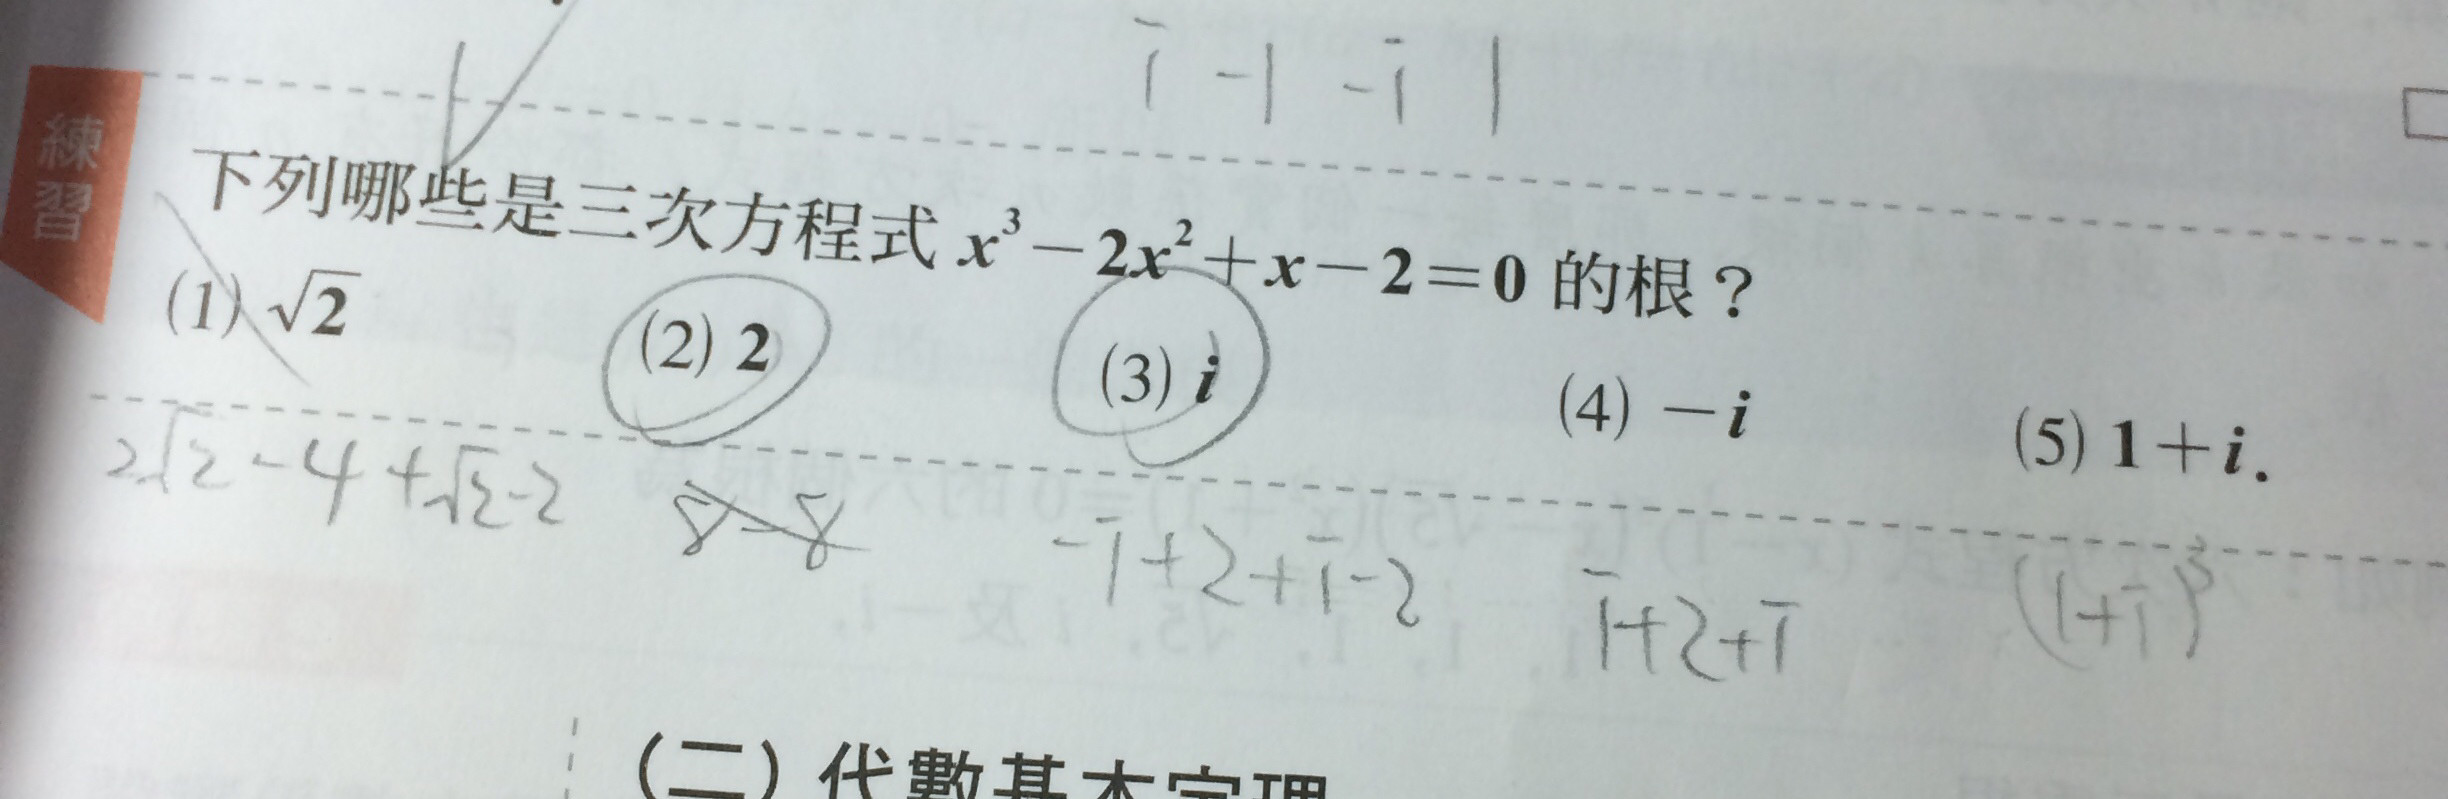 i -1 -i 1
練習
下列哪些是三次方程式 x³－2x²＋x－2＝0 的根？
(1) √2 (2) 2 (3) i (4) －i (5) 1＋i.
2√2-4+√2-2 8-8 -i+2+i-2 i+2+i (1+i)³
(二) 代數基本定理